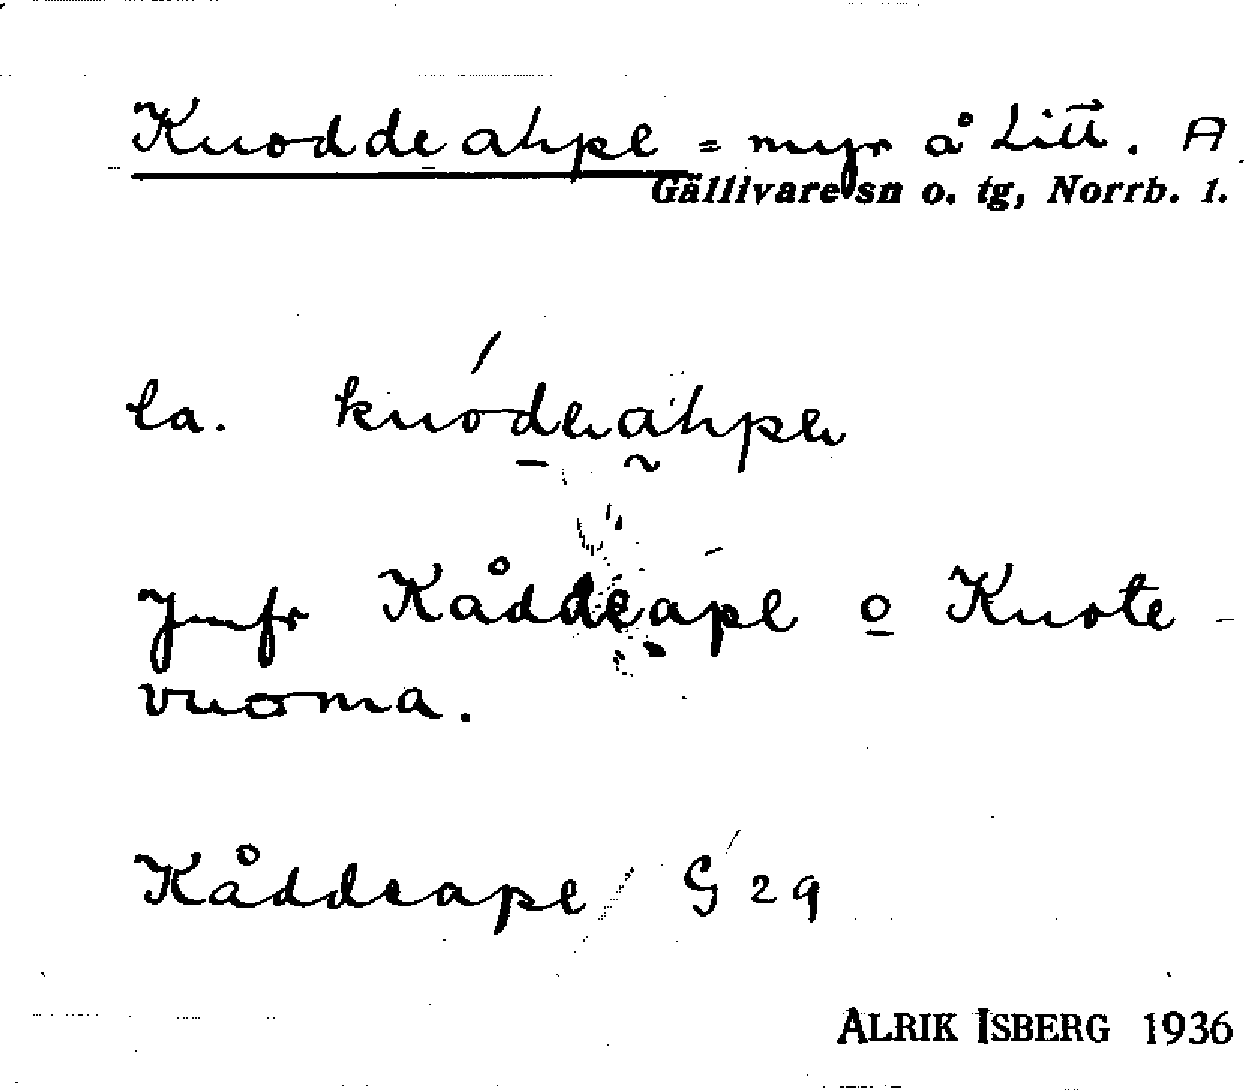 Kuoddeahpe = myr å Litt. A
Gällivare sn o. tg, Norrb. l.
la. kuódeahpe
Jmfr Kåddeape o Kuote-
vuoma.
Kåddeape / G 29
ALRIK ISBERG 1936